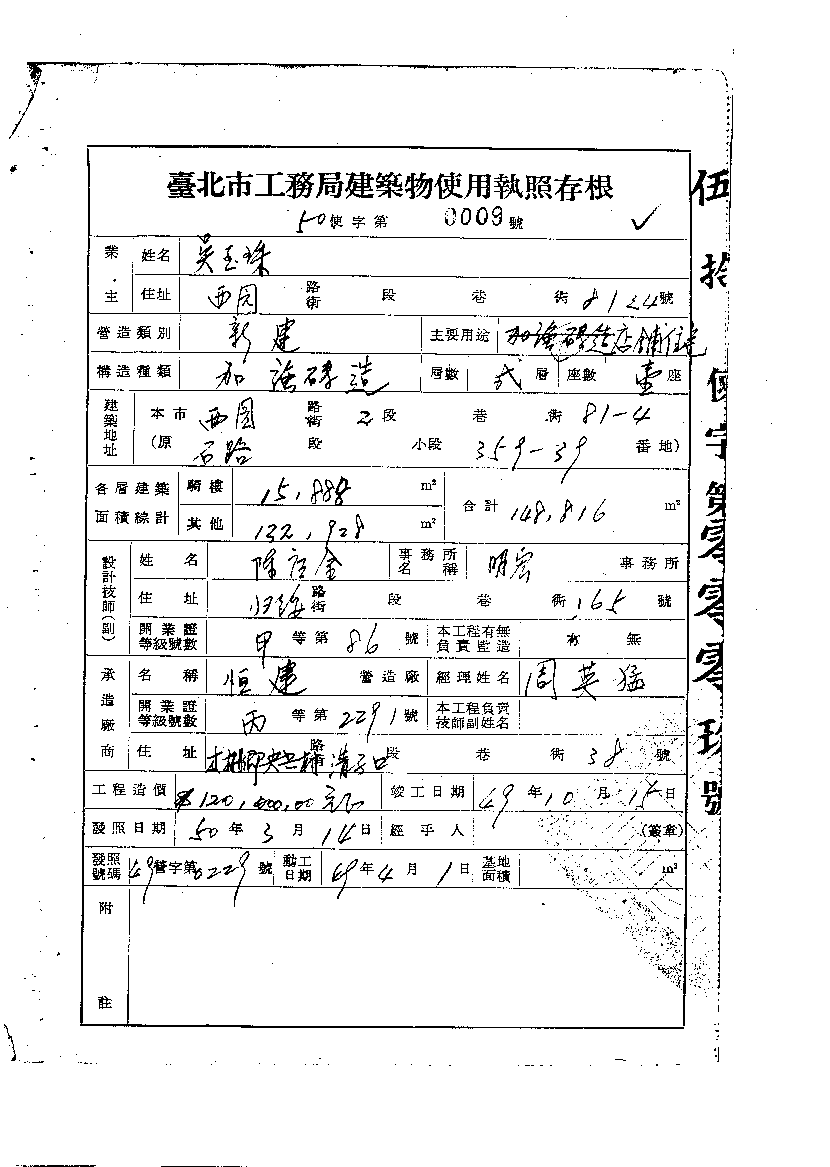 臺北市工務局建築物使用執照存根
50使字第 0009 號
業主 姓名 吳玉珠
住址 西园 路街 段 巷 街 81之4號
營造類別 新建 主要用途 加強磚造店鋪住宅
構造種類 加強磚造 層數 弍層 座數 壹座
建築地址 本市 西園 路街 2段 巷 街 81-4
(原 段 小段 359-39 番地)
各層建築面積綜計 騎樓 15,888 m² 合計 148,816 m²
其他 132,928 m²
設計技師(副) 姓名 陳 金 事務所名稱 明宏 事務所
住址 路街 段 巷 街 165 號
開業證等級號數 甲等第86號 本工程有無負責監造 有 無
承造廠商 名稱 恒建 營造廠 經理姓名 周英猛
開業證等級號數 丙等第2291號 本工程負責技師副姓名
住址 木柵鄉 溝子口 路 段 巷 街 38 號
工程造價 120,000,00 元 竣工日期 49年10月15日
發照日期 50年3月14日 經手人 (簽章)
發照號碼 49營字第0229號 動工日期 49年4月1日 基地面積 m²
附註
伍拾使字第零零零玖號